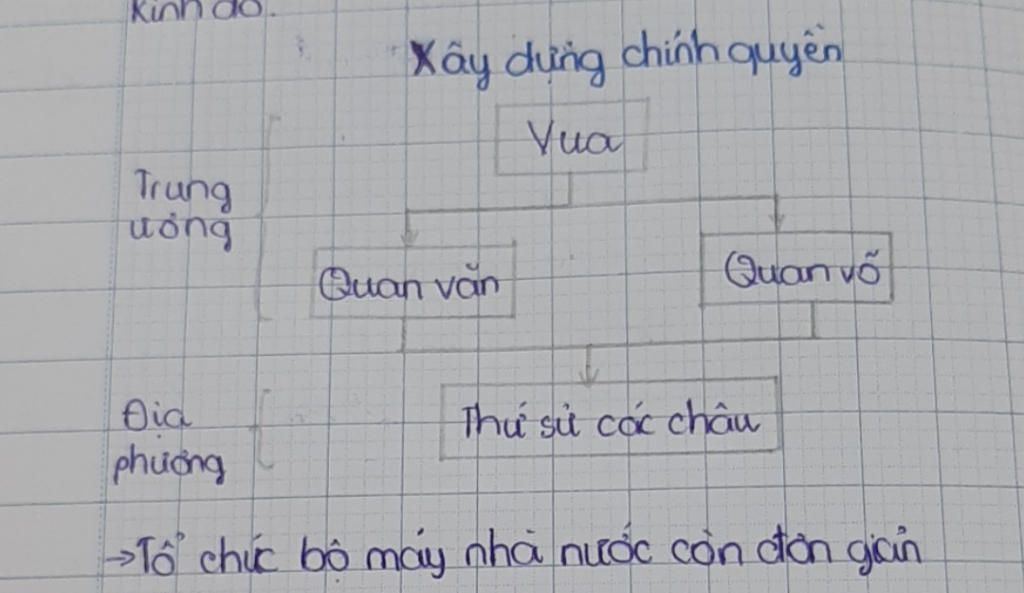 Kinh đô.
Xây dựng chính quyền
Vua
Trung
ương
Quan văn
Quan võ
Địa
phương
Thứ sử các châu
→Tổ chức bộ máy nhà nước còn đơn giản